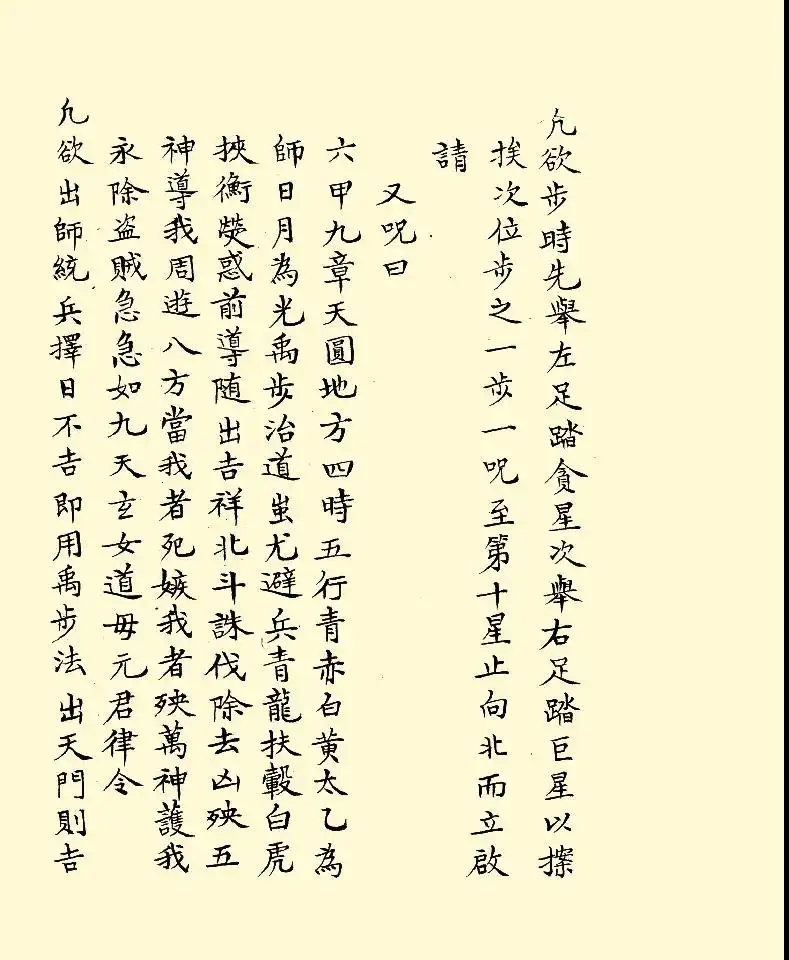 凢欲步時先舉左足踏貪星次舉右足踏巨星以擦
挨次位步之一步一呪至第十星止向北而立啟
請
又呪曰
六甲九章天圓地方四時五行青赤白黄太乙為
師日月為光禹步治道蚩尤避兵青龍扶轂白虎
挾衡熒惑前導随出吉祥北斗誅伐除去凶殃五
神導我周遊八方當我者死嫉我者殃萬神護我
永除盗賊急急如九天玄女道毋元君律令
凢欲出師統兵擇日不吉即用禹步法出天門則吉